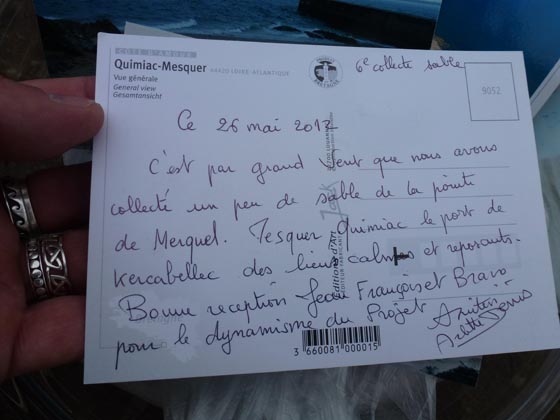 CÔTE D'AMOUR
Quimiac-Mesquer 44420 LOIRE-ATLANTIQUE
Vue générale
General view
Gesamtansicht
6e collecte sable
9052
Ce 26 mai 2012
C'est par grand Vent que nous avons
collecté un peu de sable de la pointe
de Merquel. Mesquer Quimiac le port de
Kercabellec des lieux calmes et reposants.
Bonne reception Jean François et Bravo
pour le dynamisme du Projet
Arlette
Editions d'Art Jack
3 660081 000015